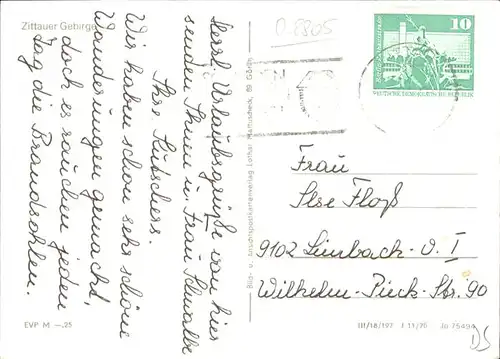 Zittauer Gebirge
D 8805
10
DEUTSCHE DEMOKRATISCHE REPUBLIK
Herzl. Urlaubsgrüße von hier
senden Ihnen u. Frau Schwalbe
Ihre
Wir haben schon sehr schöne
Wanderungen gemacht,
doch es rauchen jeden
Tag die Brandsohlen.
Bild- u. Ansichtspostkartenverlag Lothar 89 Görlitz
Frau
Ilse Floß
9102 Limbach-O. I
Wilhelm-Pieck-Str. 90
EVP M —.25
III/18/197 J 11/76 Jo 75494
DS